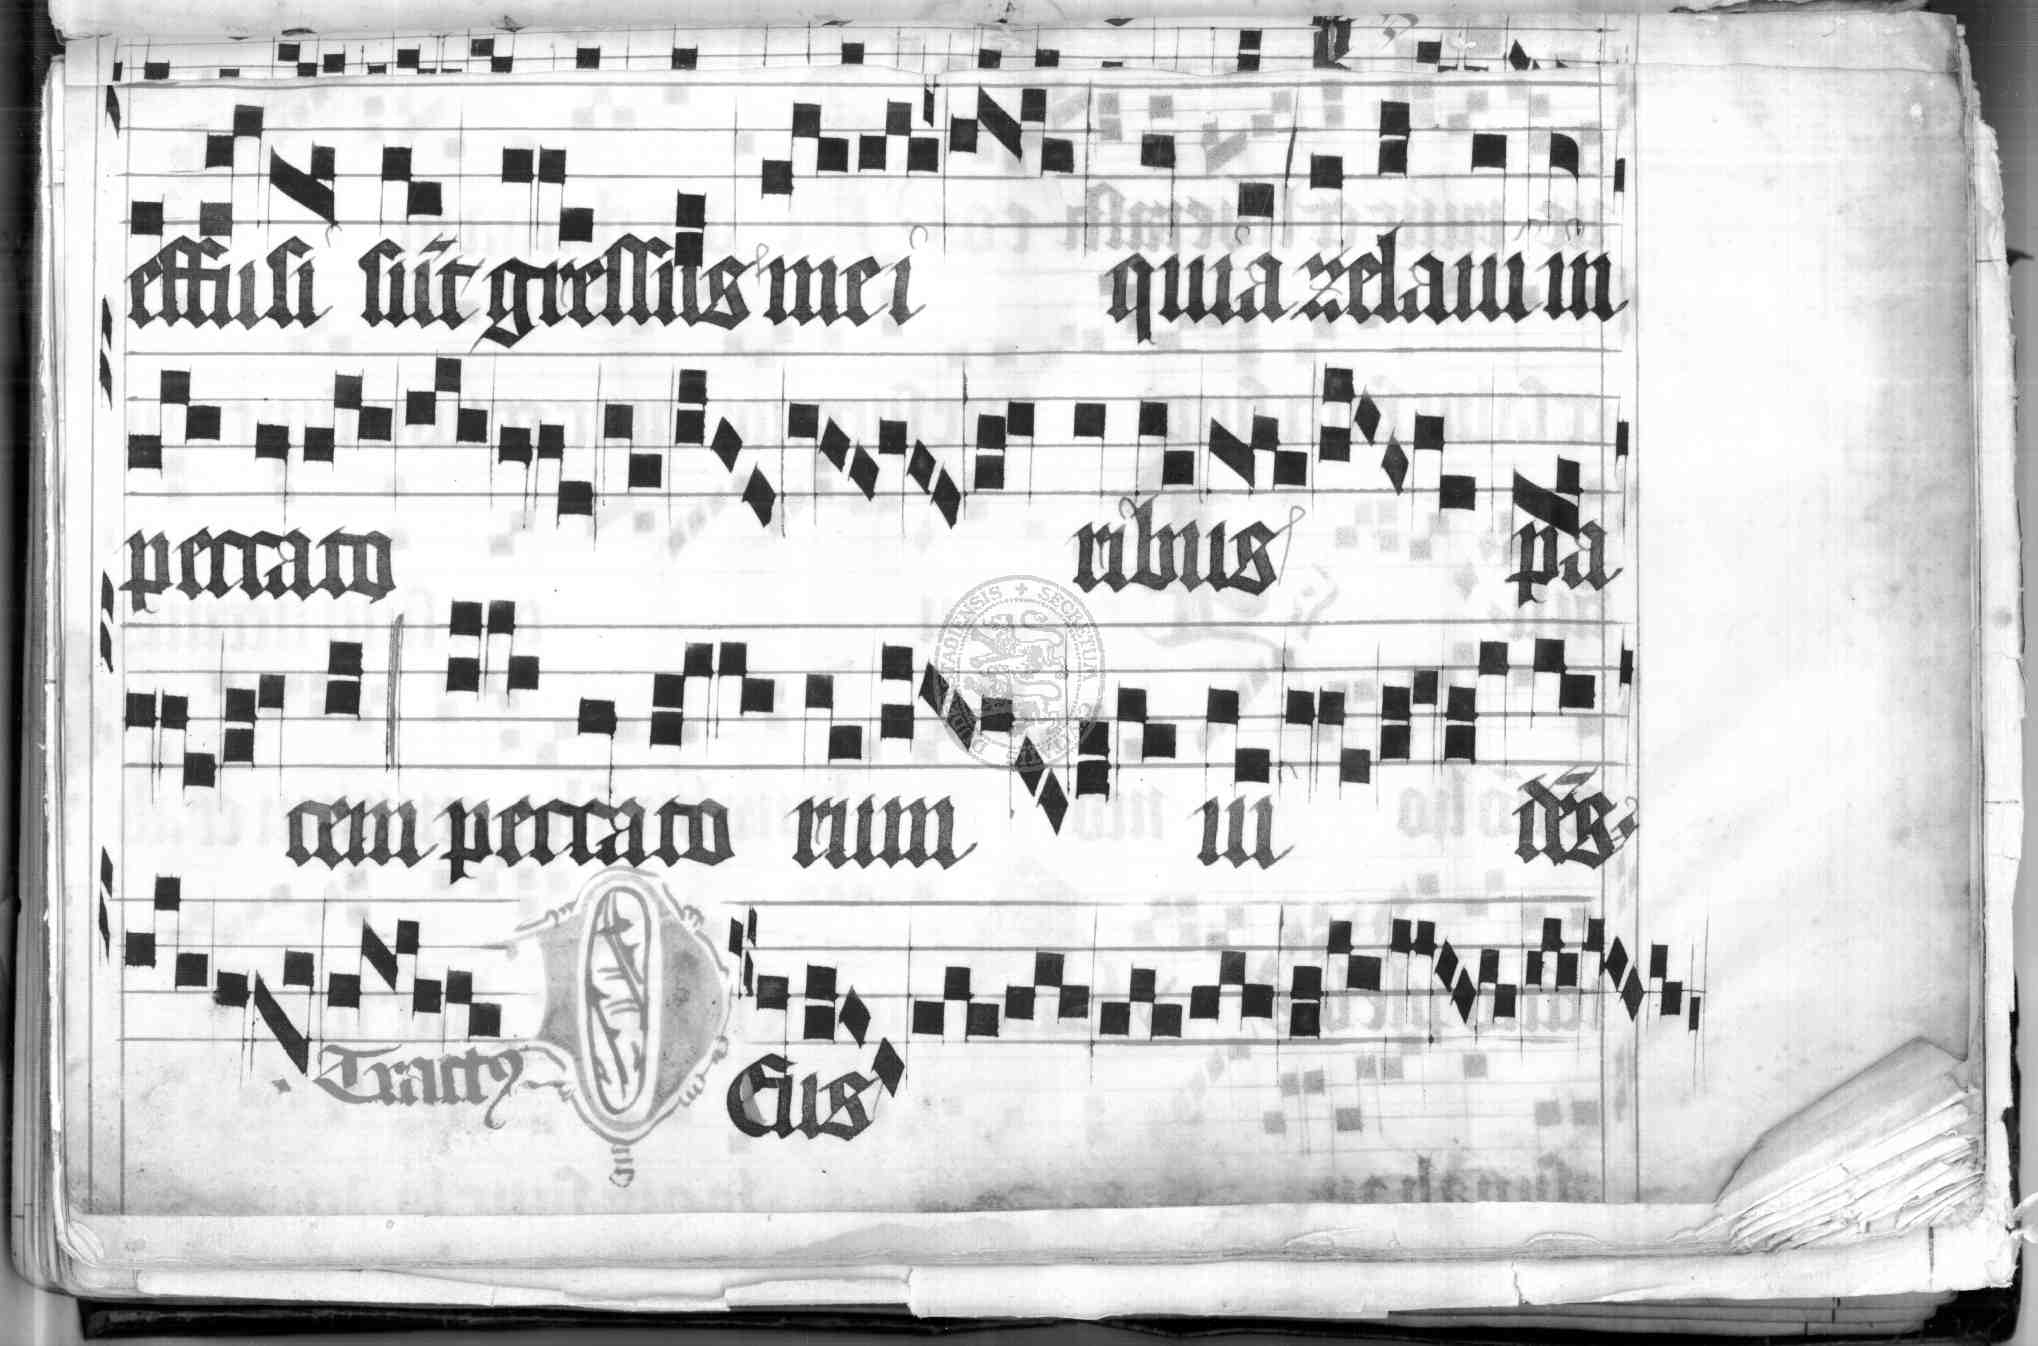 effusi sūt gressus mei quia zelaui in
peccato ribus pa
cem peccato rum ui dēs
Tractꝰ Eus